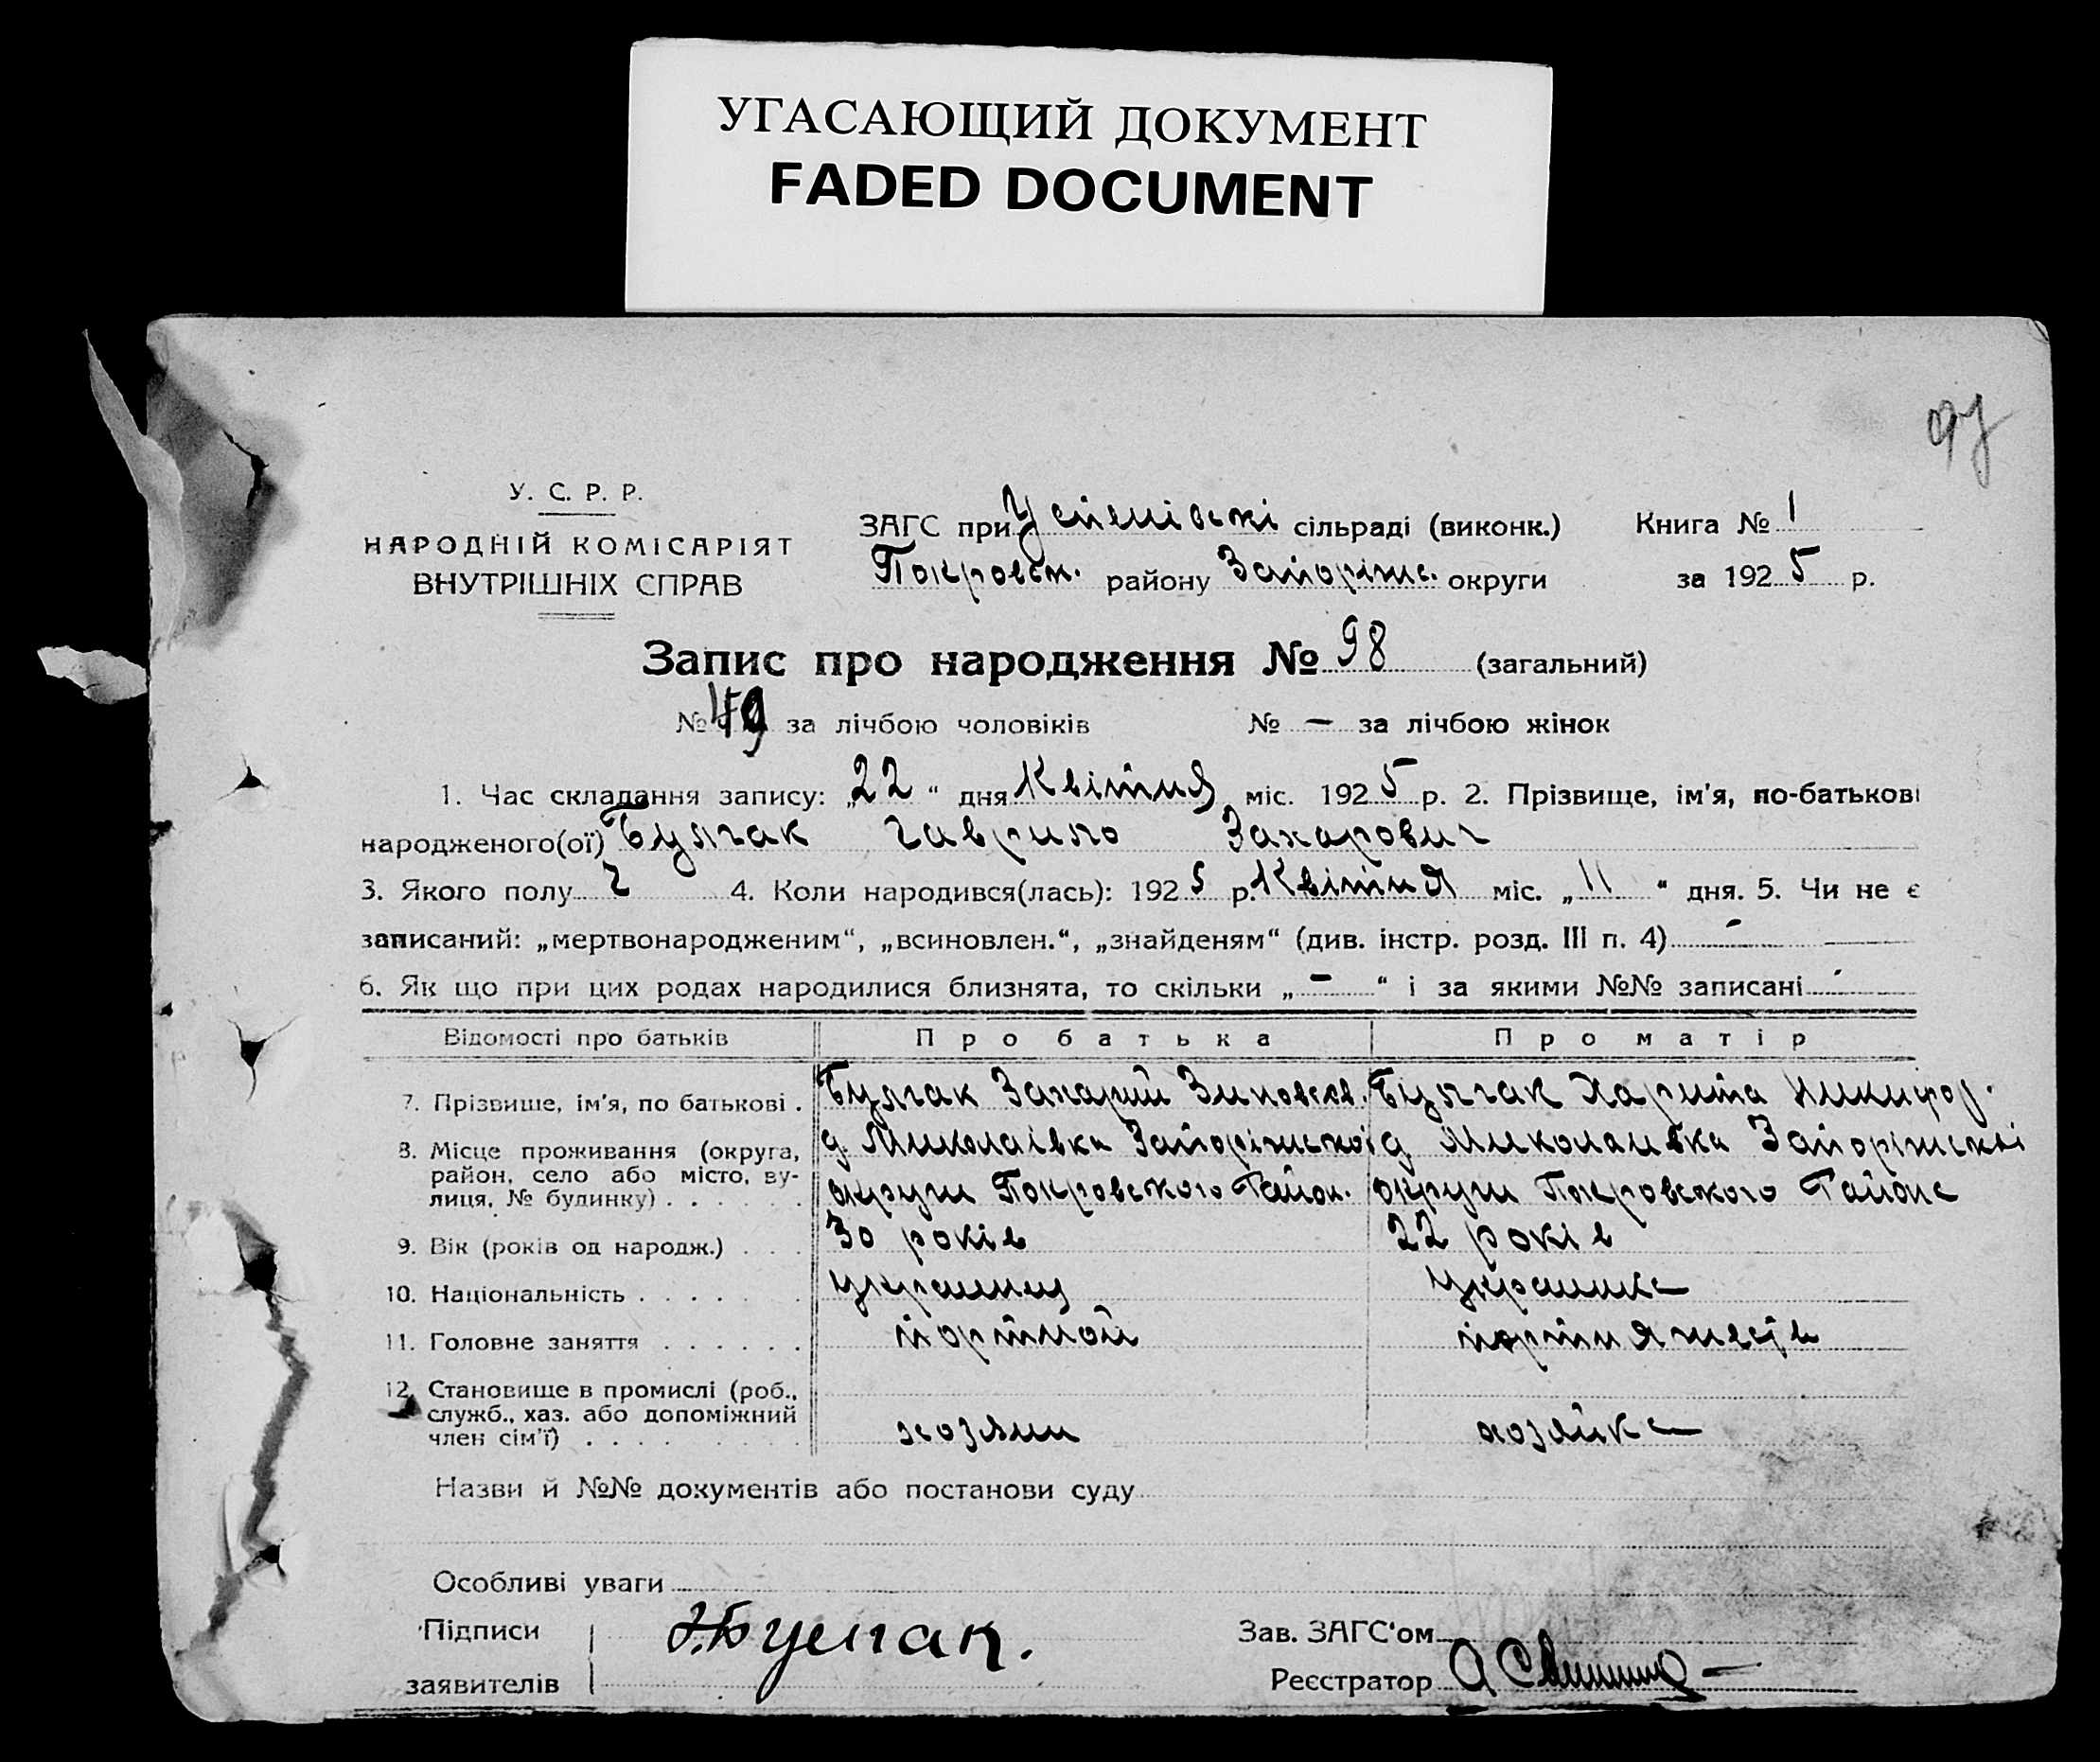 УГАСАЮЩИЙ ДОКУМЕНТ
FADED DOCUMENT
97
У. С. Р. Р.
НАРОДНІЙ КОМІСАРІЯТ
ВНУТРІШНІХ СПРАВ
ЗАГС при Успенівські сільраді (виконк.) Книга № 1
Покровськ. району Запоріжс. округи за 1925 р.
Запис про народження № 98 (загальний)
№ 49 за лічбою чоловіків № — за лічбою жінок
1. Час складання запису: „22“ дня Квітня міс. 1925 р. 2. Прізвище, ім'я, по-батькові
народженого(ої) Булгак Гаврило Захарович
3. Якого полу ч 4. Коли народився(лась): 1925 р. Квітня міс. „11“ дня. 5. Чи не є
записаний: „мертвонародженим“, „всиновлен.“, „знайденям“ (див. інстр. розд. III п. 4) -
6. Як що при цих родах народилися близнята, то скільки „-“ і за якими №№ записані -
Відомості про батьків Про батька Про матір
7. Прізвише, ім'я, по батькові . Булгак Захарий Зиновєєв. Булгак Харита Никифор.
8. Місце проживання (округа, район, село або місто, вулиця, № будинку) . . . . . . д. Миколаівка Запоріжськоі округи Покровського Район. д Миколаивка Запоріжскоі округи Покровського Района
9. Вік (років од народж.) . . . 30 років 22 років
10. Національність . . . . . . украинец украинка
11. Головне заняття . . . . . . портной
12. Становище в промислі (роб., служб., хаз. або допоміжний член сім'ї) . . . . хозяин хозяйка
Назви й №№ документів або постанови суду
Особливі уваги
Підписи
заявителів
З. Булгак.
Зав. ЗАГС'ом
Реєстратор